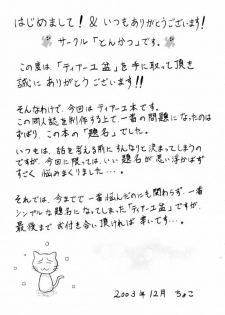 はじめまして!&いつもありがとうございます!
サークル「とんかつ」です。
この度は、「ティアーユ 盆」を手に取って頂き
誠にありがとうございます!!
そんなわけで、今回はティアーユ本です。
この同人誌を制作する上で、一番の問題になったのは
ずばり、この本の「題名」でした。
いつもは、話を考える前にすんなりと決まってしまうの
ですが、今回に限っては、いい題名が思い浮かばず
すごく悩みまくりました…。
それでは、今までで一番悩んだのにも関わらず、一番
シンプルな題名になってしまった「ティアーユ 盆」ですが、
最後までお付き合い頂ければ幸いです…。
2003年12月 ちょこ